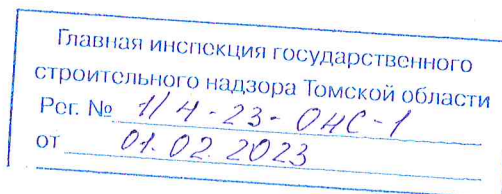 Главная инспекция государственного
строительного надзора Томской области
Рег. № 1/4-23-ОНС-1
от 01.02.2023